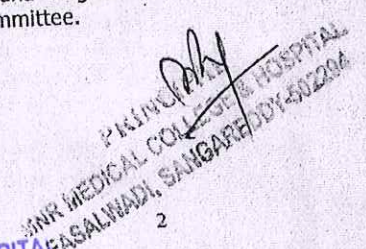 mmittee.
PRINCIPAL
MNR MEDICAL COLLEGE & HOSPITAL
FASALWADI, SANGAREDDY-502294
2